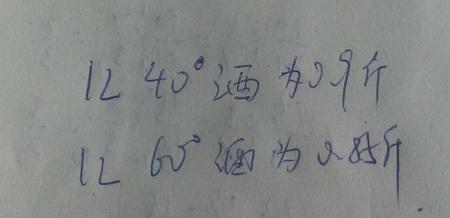 1L 40°酒为0.9斤
1L 60°酒为0.85斤